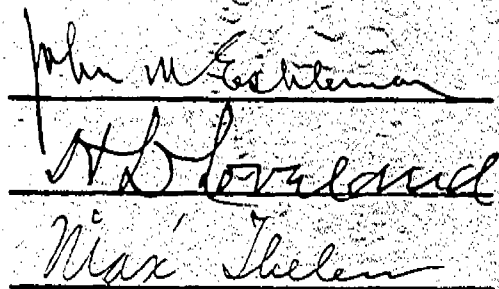 John M Eshleman
H D Loveland
Max Thelen